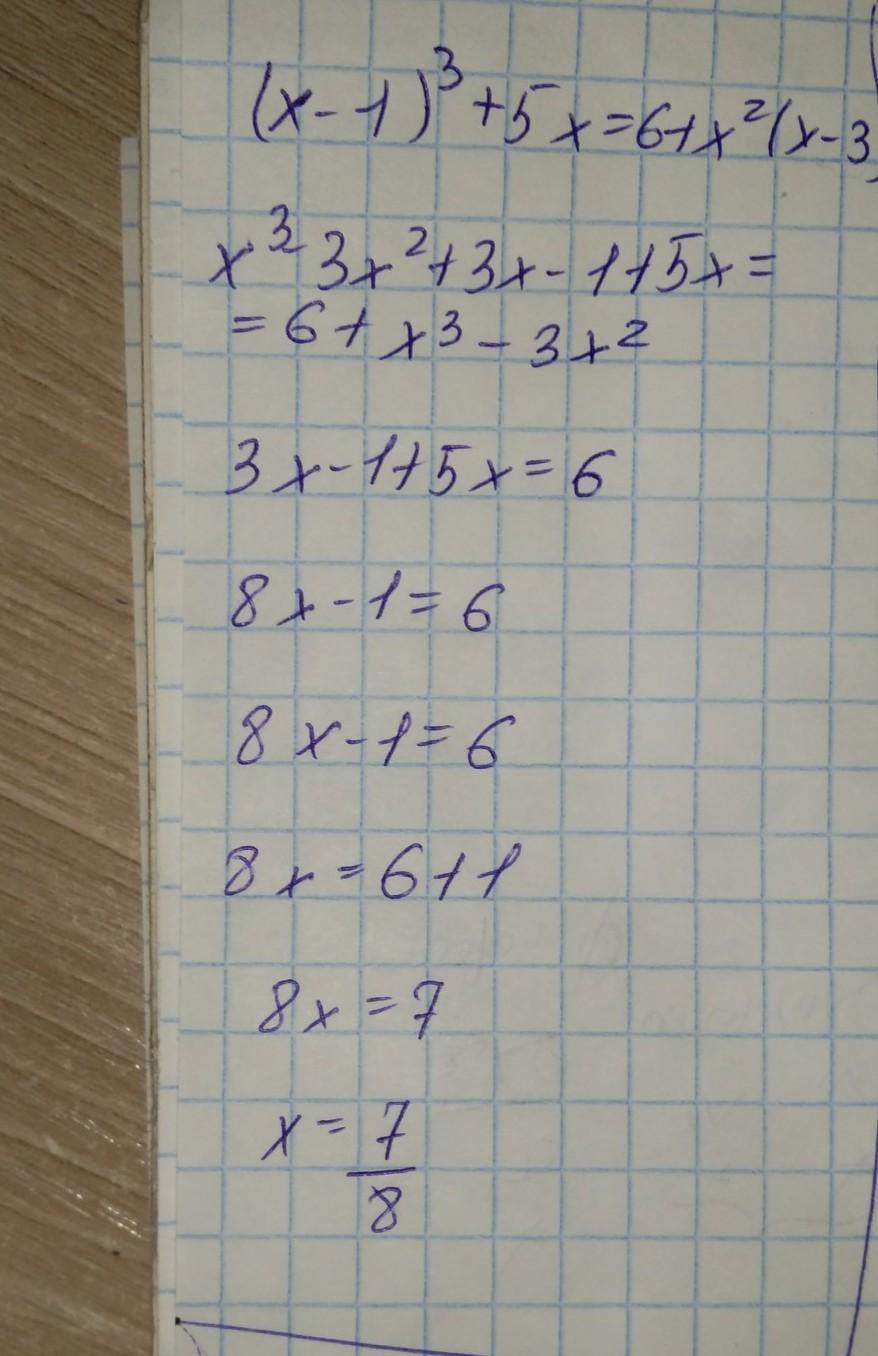 (x-1)³+5x=6+x²(x-3)
x³3x²+3x-1+5x=
=6+x³-3x²
3x-1+5x=6
8x-1=6
8x-1=6
8x=6+1
8x=7
x=7/8